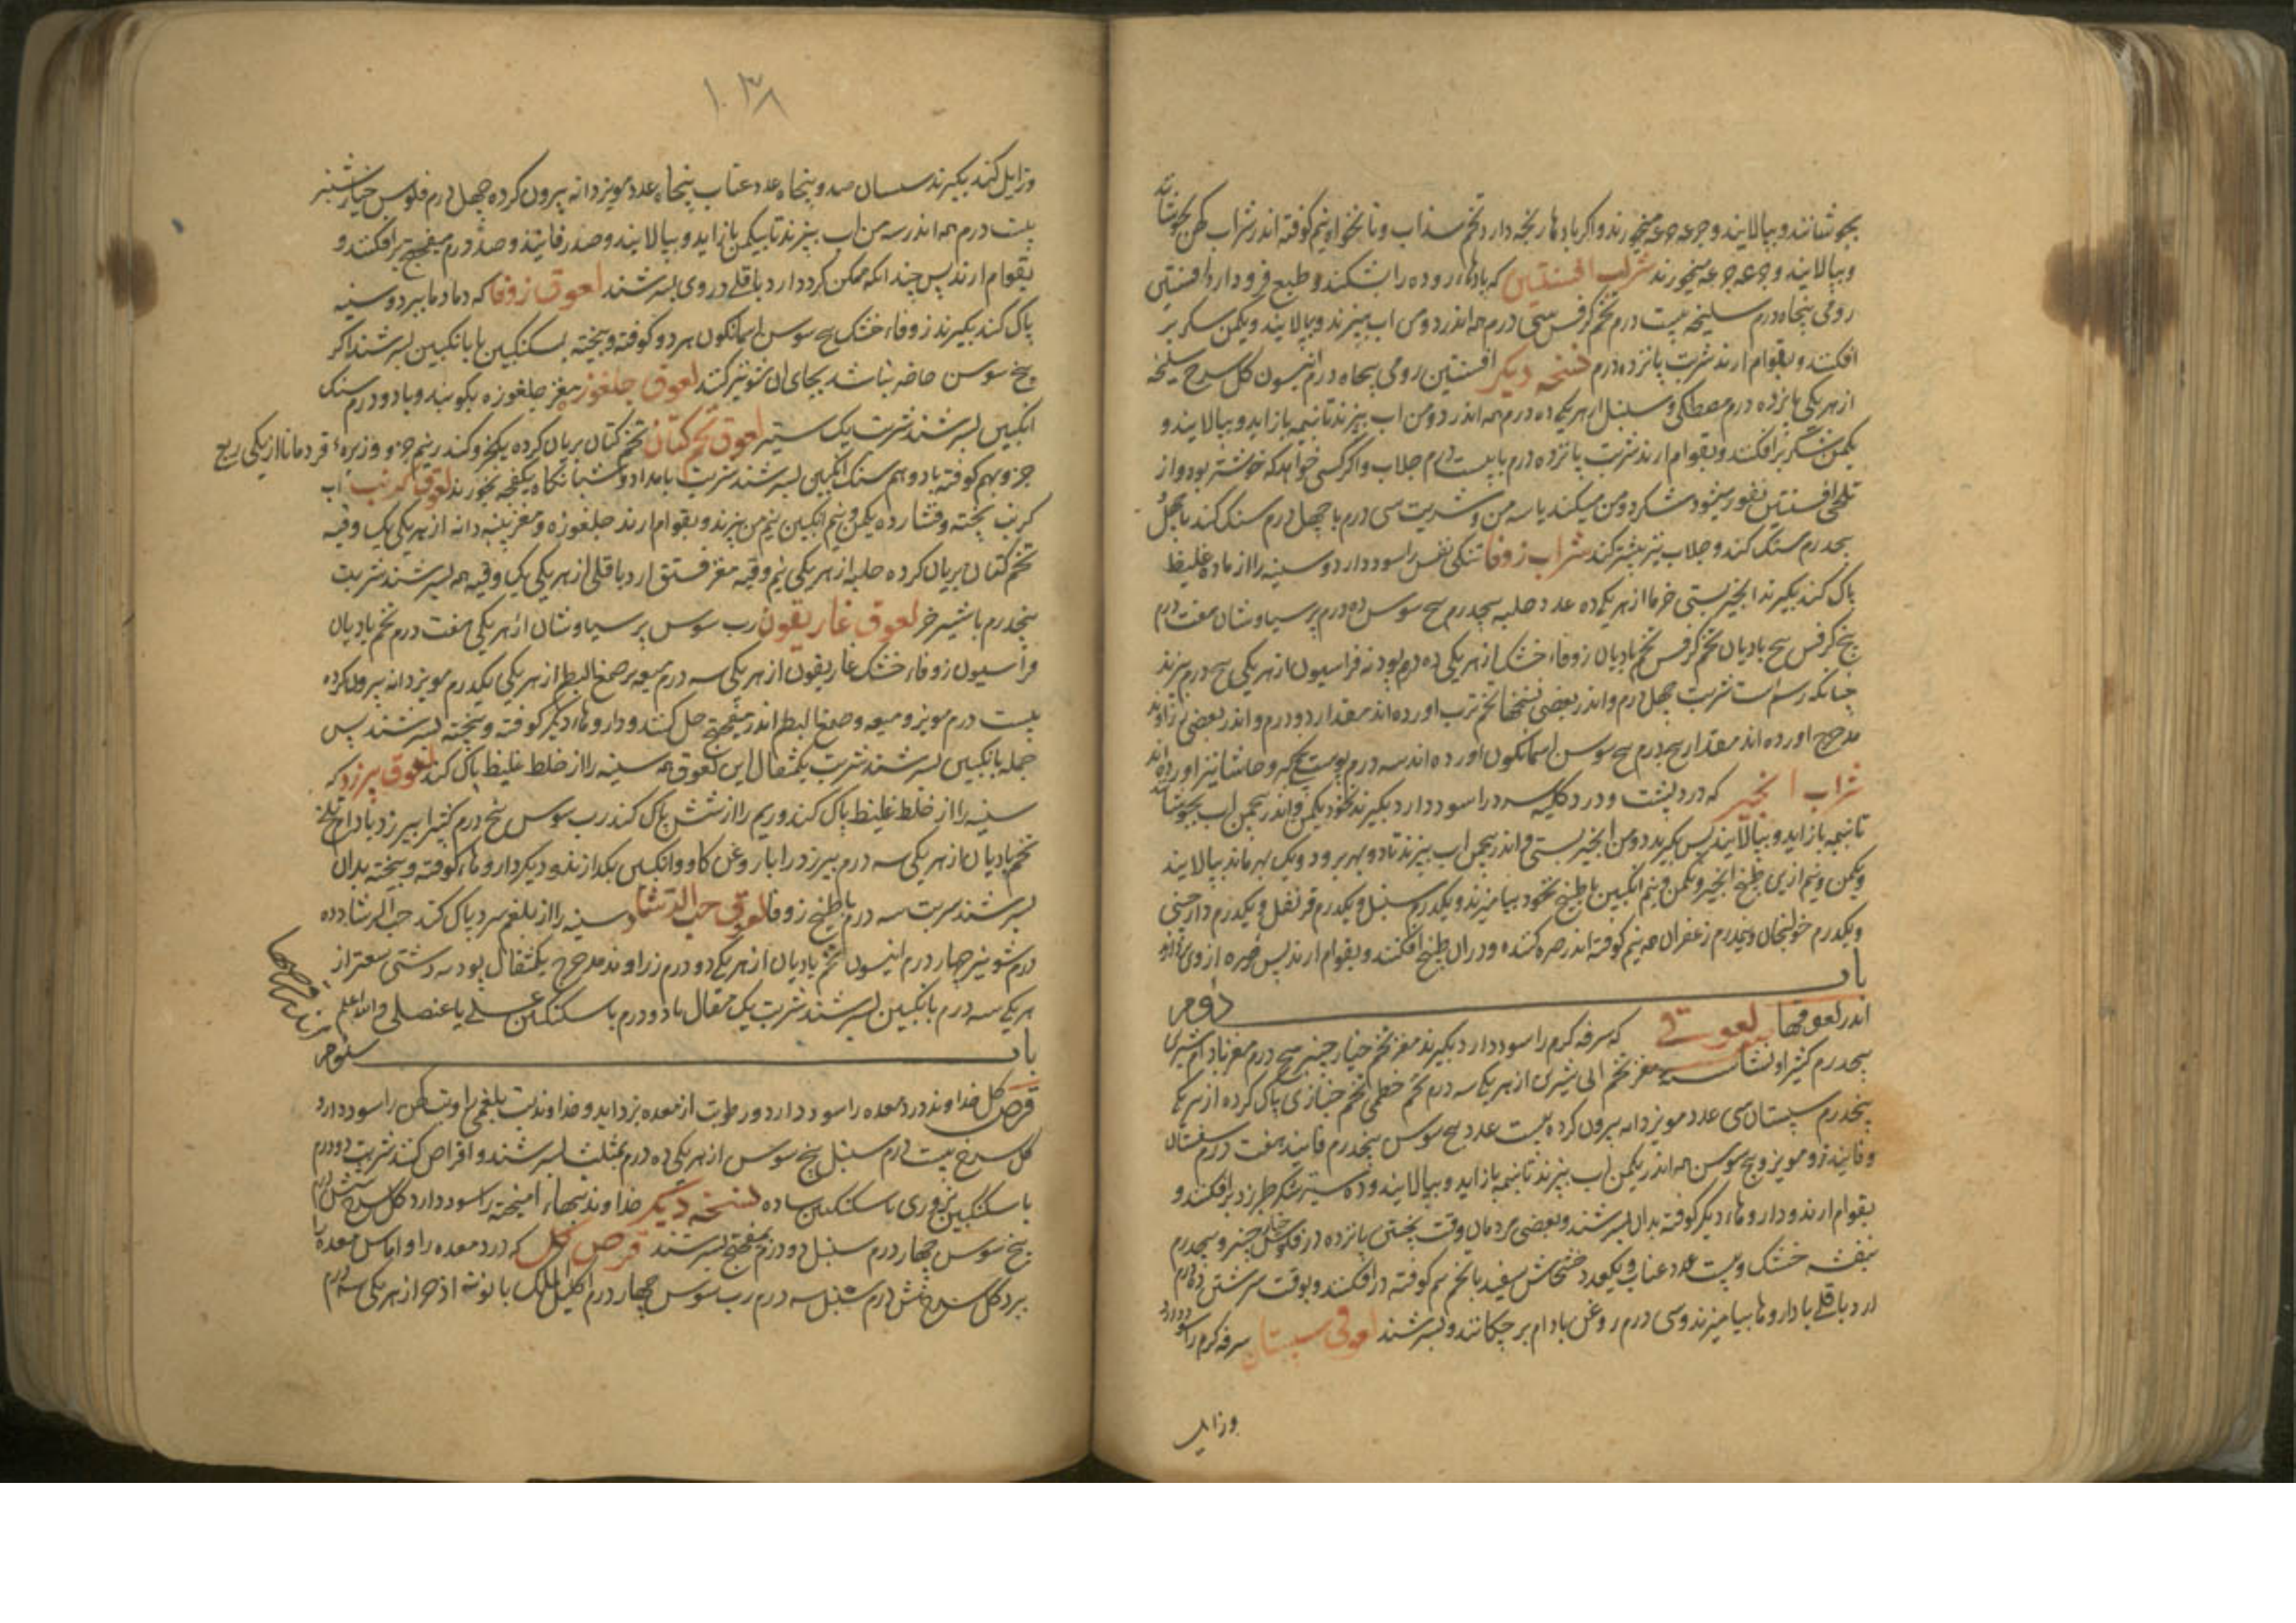 بجوشانند و بپالایند و جرعه جرعه میخورند و اکر بادها رنجه دارد تخم سداب و نانخواه نیم کوفته اندر شراب کهن بجوشانند
و بپالایند و جرعه جرعه میخورند شراب افسنتین که بادهاء روده را بشکند و طبع فرود ارد افسنتین
رومی پنجاه درم سلیخه بیست درم تخم کرفس سی درم همه اندر دو من اب بپزند و بپالایند و یکمن شکر بر
افکنند و بقوام ارند شربت پانزده درم نسخه دیکر افسنتین رومی پنجاه درم انیسون کل سرخ سلیخه
از هر یکی پانزده درم مصطکی و سنبل از هر یکی ده درم همه اندر دو من اب بپزند تا نیمه باز اید و بپالایند و
یکمن شکر برافکنند و بقوام ارند شربت پانزده درم با بیست درم جلاب و اکر کسی خواهد که خوشتر بود و از
تلخی افسنتین نفور میشود شکر دو من میکند یا سه من و شربت سی درم یا چهل درم سنک کند یا چهل
پنجدرم سنک کند و جلاب نیز بیشتر کند شراب زوفا تنکی نفس را سود دارد و سینه را از ماده غلیظ
پاک کند بکیرند انجیر بستی خرما از هر یکی ده عدد حلبه پنجدرم بیخ سوس ده درم پرسیاوشان هفت درم
بیخ کرفس بیخ بادیان تخم کرفس تخم بادیان زوفاء خشک از هر یکی ده درم پودنه فراسیون از هر یکی پنج درم بپزند
چنانکه رسم است شربت چهل درم و اندر بعضی نسخها تخم ترب اورده اند مقدار دو درم و اندر بعضی زراوند
مدحرج اورده اند مقدار پنجدرم بیخ سوسن اسمانکون اورده اند سه درم پوست بیخ کبر و حاشا نیز اورده اند
شراب انجیر که درد پشت و درد کلیه سرد را سود دارد بکیرند نخود یکمن و اندر پنجمن اب بجوشانند
تا نیمه باز اید و بپالایند پس بکیرند دو من انجیر بستی و اندر پنجمن اب بپزند تا دو بهر برود و یک بهر بماند بپالایند
و یکمن و نیم ازین طبیخ انجیر و یکمن و نیم انکبین با طبیخ نخود بیامیزند و یکدرم سنبل و یکدرم قرنفل و یکدرم دارچینی
و یکدرم خولنجان و نیمدرم زعفران همه نیم کوفته اندر صره کنند و در ان طبیخ افکنند و بقوام ارند پس صره از وی بردارند
باب دوم
اندر لعوقها لعوقی که سرفه کرم را سود دارد بکیرند مغز تخم خیار چنبر پنج درم مغز بادام شیرین
پنجدرم کثیرا و نشاسته مغز تخم ابی شیرین از هر یکی سه درم تخم خطمی تخم خبازی پاک کرده از هر یکی
پنجدرم سپستان سی عدد مویز دانه بیرون کرده بیست عدد بیخ سوس پنجدرم فانیذ هفت درم سپستان
و فانیذ و مویز و بیخ سوسن همه اندر یکمن اب بپزند تا نیمه باز اید و بپالایند و ده ستیر شکر طبرزد برافکنند و
بقوام ارند و داروهاء دیکر کوفته بدان بسرشند و بعضی مردمان وقت پختن پانزده درم فلوس خیار چنبر و پنجدرم
بنفشه خشک و بیست عدد عناب و یکعدد خشخاش سفید با تخم هم کوفته درافکنند و بوقت سرشتن ده درم
ارد باقلی با داروها بیامیزند و سی درم روغن بادام بر چکانند و بسرشند لعوق سپستان سرفه کرم را سود دارد
وزایل
۱۰۳۸
وزایل کند بکیرند سپستان صد و پنجاه عدد عناب پنجاه عدد مویز دانه بیرون کرده چهل درم فلوس خیار شنبر
بیست درم همه اندر سه من اب بپزند تا بیکمن باز اید و بپالایند و صد درم فانیذ و صد درم میفختج برافکنند و
بقوام ارند پس چندانکه ممکن کردد ارد باقلی در وی بسرشند لعوق زوفا که دمادما ببرد و سینه
پاک کند بکیرند زوفاء خشک بیخ سوسن اسمانکون هر دو کوفته و بیخته بسکنکبین یا بانکبین بسرشند اکر
بیخ سوسن حاضر نباشد بجای ان شونیز کنند لعوق جلغوزه مغز جلغوزه بکوبند و با دو درم سنک
انکبین بسرشند شربت یک ستیر لعوق تخم کتان تخم کتان بریان کرده یکجزو کندر نیم جزو و زیره و قردمانا از یکی ربع
جزو بهم کوفته با دو هم سنک انکبین بسرشند شربت بامداد و شبانکاه یکفچه بخورند لعوق کرنب اب
کرنب پخته و فشارده یکمن و نیم انکبین نیم من بپزند و بقوام ارند جلغوزه و مغز پنبه دانه از هر یکی یک وقیه
تخم کتان بریان کرده حلبه از هر یکی نیم وقیه مغز فستق ارد باقلی از هر یکی یک وقیه همه بسرشند شربت
پنجدرم با شیر خر لعوق غاریقون رب سوس پرسیاوشان از هر یکی هفت درم تخم بادیان
فراسیون زوفاء خشک غاریقون از هر یکی سه درم میعه صمغ البطم از هر یکی یکدرم مویز دانه بیرون کرده
بیست درم مویز و میعه و صمغ البطم اندر میفختج حل کنند و داروهاء دیکر کوفته و بیخته بسرشند پس
جمله بانکبین بسرشند شربت یکمثقال این لعوق همه سینه را از خلط غلیظ پاک کند لعوق بیرزد که
سینه را از خلط غلیظ پاک کند و ریم را از شش پاک کند رب سوس پنج درم کثیرا بیرزد بادام تلخ
تخم بادیان از هر یکی سه درم بیرزد را با روغن کاو و انکبین بکدازند و دیکر داروهاء کوفته و بیخته بدان
بسرشند شربت سه درم با طبیخ زوفا لعوق حب الرشاد سینه را از بلغم سرد پاک کند حب الرشاد ده
درم شونیز چهار درم انیسون تخم بادیان از هر یکی دو درم زراوند مدحرج یکمثقال پودنه دشتی سعتر از
هر یکی سه درم بانکبین بسرشند شربت یک مثقال با دو درم یا سکنکبین عسلی یا عنصلی والله اعلم
باب سوم
قرص کل خداوند درد معده را سود دارد و رطوبت از معده بزداید و خداوند تب بلغمی را و تب کهن را سود دارد
کل سرخ بیست درم سنبل بیخ سوس از هر یکی ده درم بمثلث بسرشند و اقراص کنند شربت دو درم
با سکنکبین بزوری یا سکنکبین ساده نسخه دیکر خداوند تبهاء امیخته را سود دارد کل سرخ شش درم
بیخ سوس چهار درم سنبل دو درم بمیفختج بسرشند قرص کل که درد معده را و اماس معده را
ببرد کل سرخ شش درم سنبل سه درم رب سوس چهار درم اکلیل الملک بابونه اذخر از هر یکی سه درم